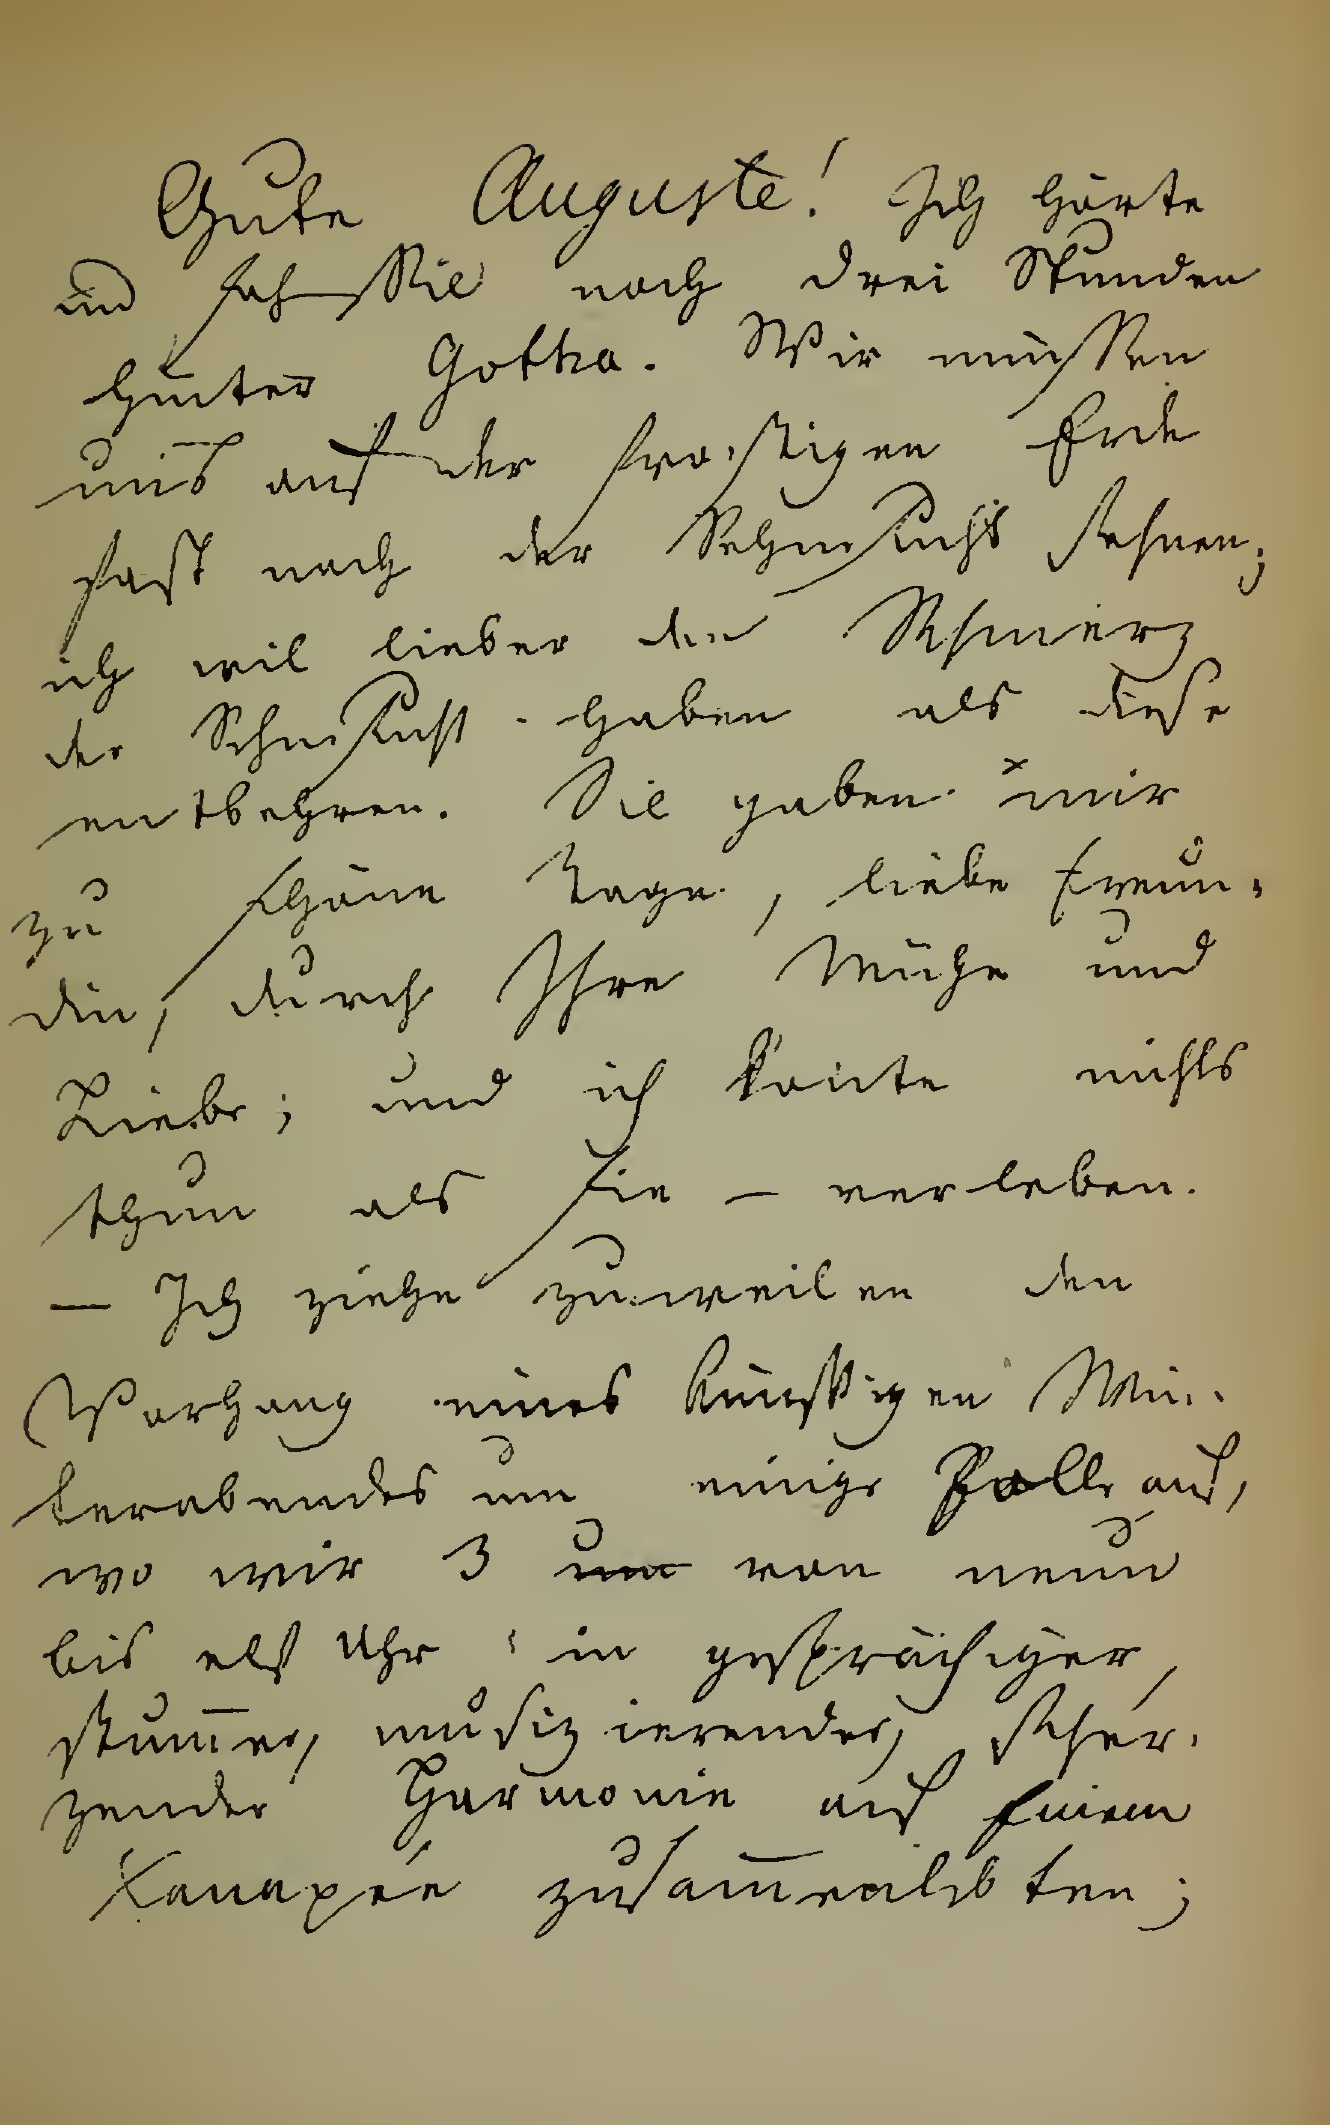 Gute Auguste! Ich hörte
und sah Sie noch drei Stunden
hinter Gotha. Wir müssen
uns auf der frostigen Erde
fast nach der Sehnsucht sehnen;
ich wil lieber den Schmerz
der Sehnsucht haben als diese
entbehren. Sie gaben mir
zu schöne Tage, liebe Freun-
din, durch Ihre Mühe und
Liebe; und ich konte nichts
thun als sie — verleben.
— Ich ziehe zuweilen den
Vorhang eines künftigen Win-
terabendes um einige Zolle auf,
wo wir 3 um von neun
bis elf Uhr in gesprächiger,
stum̄er, musizierender, scher-
zender Harmonie auf Einem
Kanapée zusam̄enlebten;